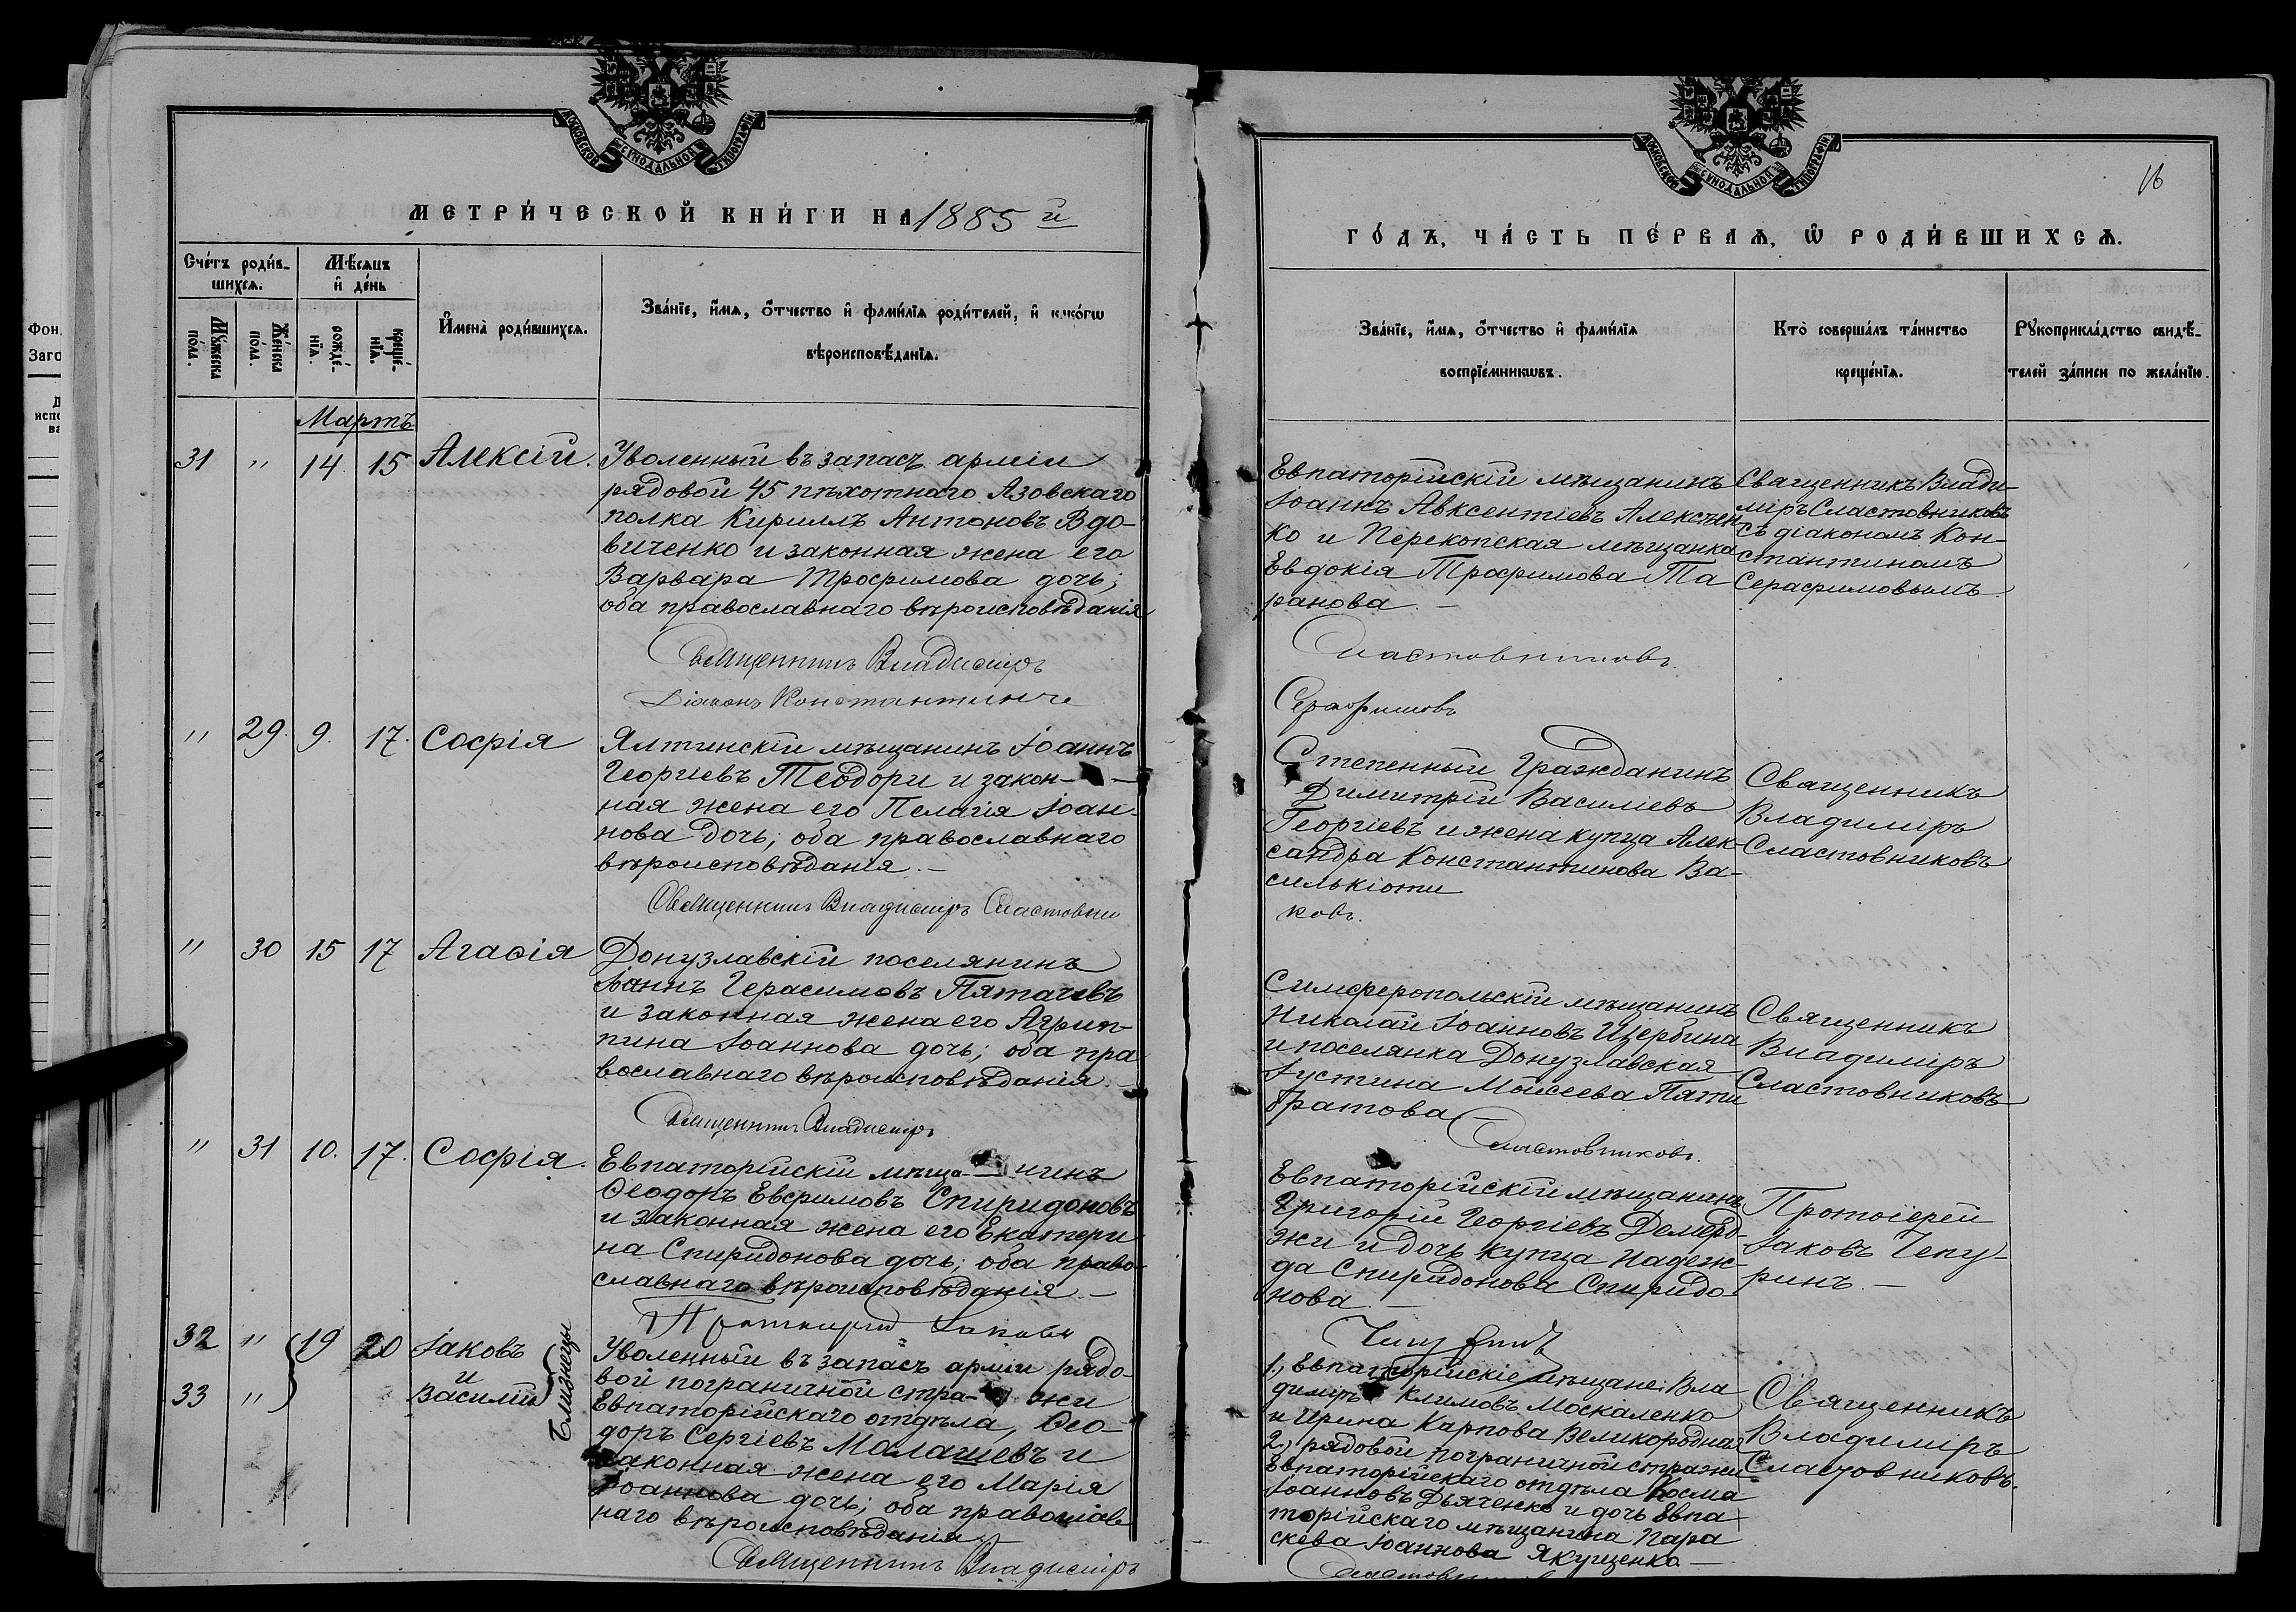 МЕТРИ́ЧЕСКОЙ КНИ́ГИ НА 1885 й
Сче́тъ роди́в-
шихсѧ.
Мѣ́сѧцъ
и҆ де́нь
Мꙋ́жеска
по́ла.
Же́нска
по́ла.
рожде́-
нїѧ.
креще́-
нїѧ.
И҆мена̀ роди́вшихсѧ.
Зва́нїе, и҆́мѧ, ѻ҆́тчество и҆ фами́лїѧ роди́телей, и҆ како́гѡ
вѣроисповѣ́данїѧ.
Мартъ
31 " 14. 15 Алексій.
Уволенный въ запасъ арміи
рядовой 45 пѣхотнаго Азовскаго
полка Кириллъ Антоновъ Вдо-
виченко и законная жена его
Варвара Трофимова дочь;
оба православнаго вѣроисповѣданія
Священникъ Владиміръ
Діаконъ Константинъ
" 29. 9. 17. Софія
Ялтинскій мѣщанинъ Іоаннъ
Георгіевъ Теодори и закон-
ная жена его Пелагія Іоан-
нова дочь; оба православнаго
вѣроисповѣданія. –
Священникъ Владиміръ Сластовни
" 30 15 17 Агаѳія
Донузлавскій поселянинъ
Іоаннъ Герасимовъ Пятачевъ
и законная жена его Агрип-
пина Іоаннова дочь; оба пра-
вославнаго вѣроисповѣданія. –
Священникъ Владиміръ
" 31 10. 17. Софія.
Евпаторійскій мѣща- нинъ
Ѳеодоръ Евфимовъ Спиридоновъ
и законная жена его Екатери
на Спиридонова дочь; оба право-
славнаго вѣроисповѣданія –
Протоіерей Іаковъ
32 " 19 20 Іаковъ
и
33 " Василій
Близнецы
Уволенный въ запасъ арміи рядо-
вой пограничной стра- жи
Евпаторійскаго отдѣла, Ѳео-
доръ Сергіевъ Малашевъ и
законная жена его Марія
Іоаннова дочь; оба православ
наго вѣроисповѣданія
Священникъ Владиміръ
16
ГО́ДЪ, ЧА́СТЬ ПЕ́РВАѦ, Ѡ҆ РОДИ́ВШИХСѦ.
Зва́нїе, и҆́мѧ, ѻ҆́тчество и҆ фами́лїѧ
воспрїе́мникѡвъ.
Кто̀ соверша́лъ та́инство
креще́нїѧ.
Рꙋкоприкла́дство свидѣ́-
телей за́писи по жела́нїю.
Евпаторійскій мѣщанинъ
Іоаннъ Авксентіевъ Алексѣен-
ко и Перекопская мѣщанка
Евдокія Трофимова Та
ранова. –
Священникъ Влади-
міръ Сластовниковъ
съ діакономъ Кон-
стантиномъ
Серафимовымъ.
Сластовниковъ.
Серафимовъ
Степенный Гражданинъ
Димитрій Василіевъ
Георгіевъ и жена купца Алек-
сандра Константинова Ва-
силькіоти
Священникъ
Владиміръ
Сластовниковъ
ковъ.
Симферопольскій мѣщанинъ
Николай Іоанновъ Щербина
и поселянка Донузлавская
Іустина Моисеева Пяти
братова
Священникъ
Владиміръ
Сластовниковъ
Сластовниковъ.
Евпаторійскій мѣщанинъ
Григорій Георгіевъ Демерд-
жи и дочь купца Надеж-
да Спиридонова Спиридо-
нова. –
Протоіерей
Іаковъ Чепу-
ринъ. –
Чепуринъ
1., Евпаторійскіе мѣщане: Вла
диміръ Климовъ Москаленко
и Ирина Карпова Великородная
2., рядовой пограничной стражи
Евпаторійскаго отдѣла Косма
Іоанновъ Дьяченко и дочь Евпа
торійскаго мѣщанина Пара
скева Іоаннова Якущенко. –
Священникъ
Владиміръ
Сластовниковъ.